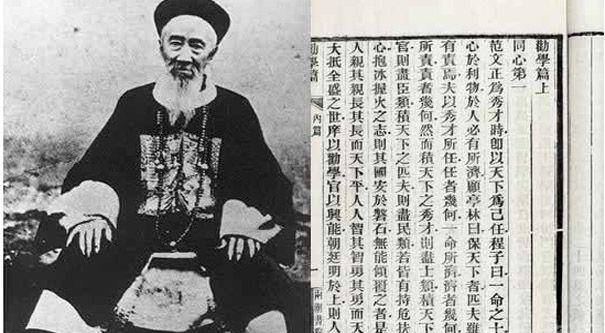 勸學篇上
同心第一
范文正爲秀才時卽以天下爲己任程子曰一命之士
心於利物於人必有所濟顧亭林曰保天下者匹夫雖
有責焉夫以秀才所任任者幾何一命所濟濟者幾何
所責責者幾何然而積天下之秀才則盡士類積天下
官則盡臣類積天下之匹夫則盡民類若皆有持危扶
心抱冰握火之志則其國安於磐石無能傾覆之者是
人親其親長其長而天下平人人智其智勇其勇而天
大抵全盛之世庠以勸學官以興能朝廷明於上則人
勸學篇
內篇
兩湖書